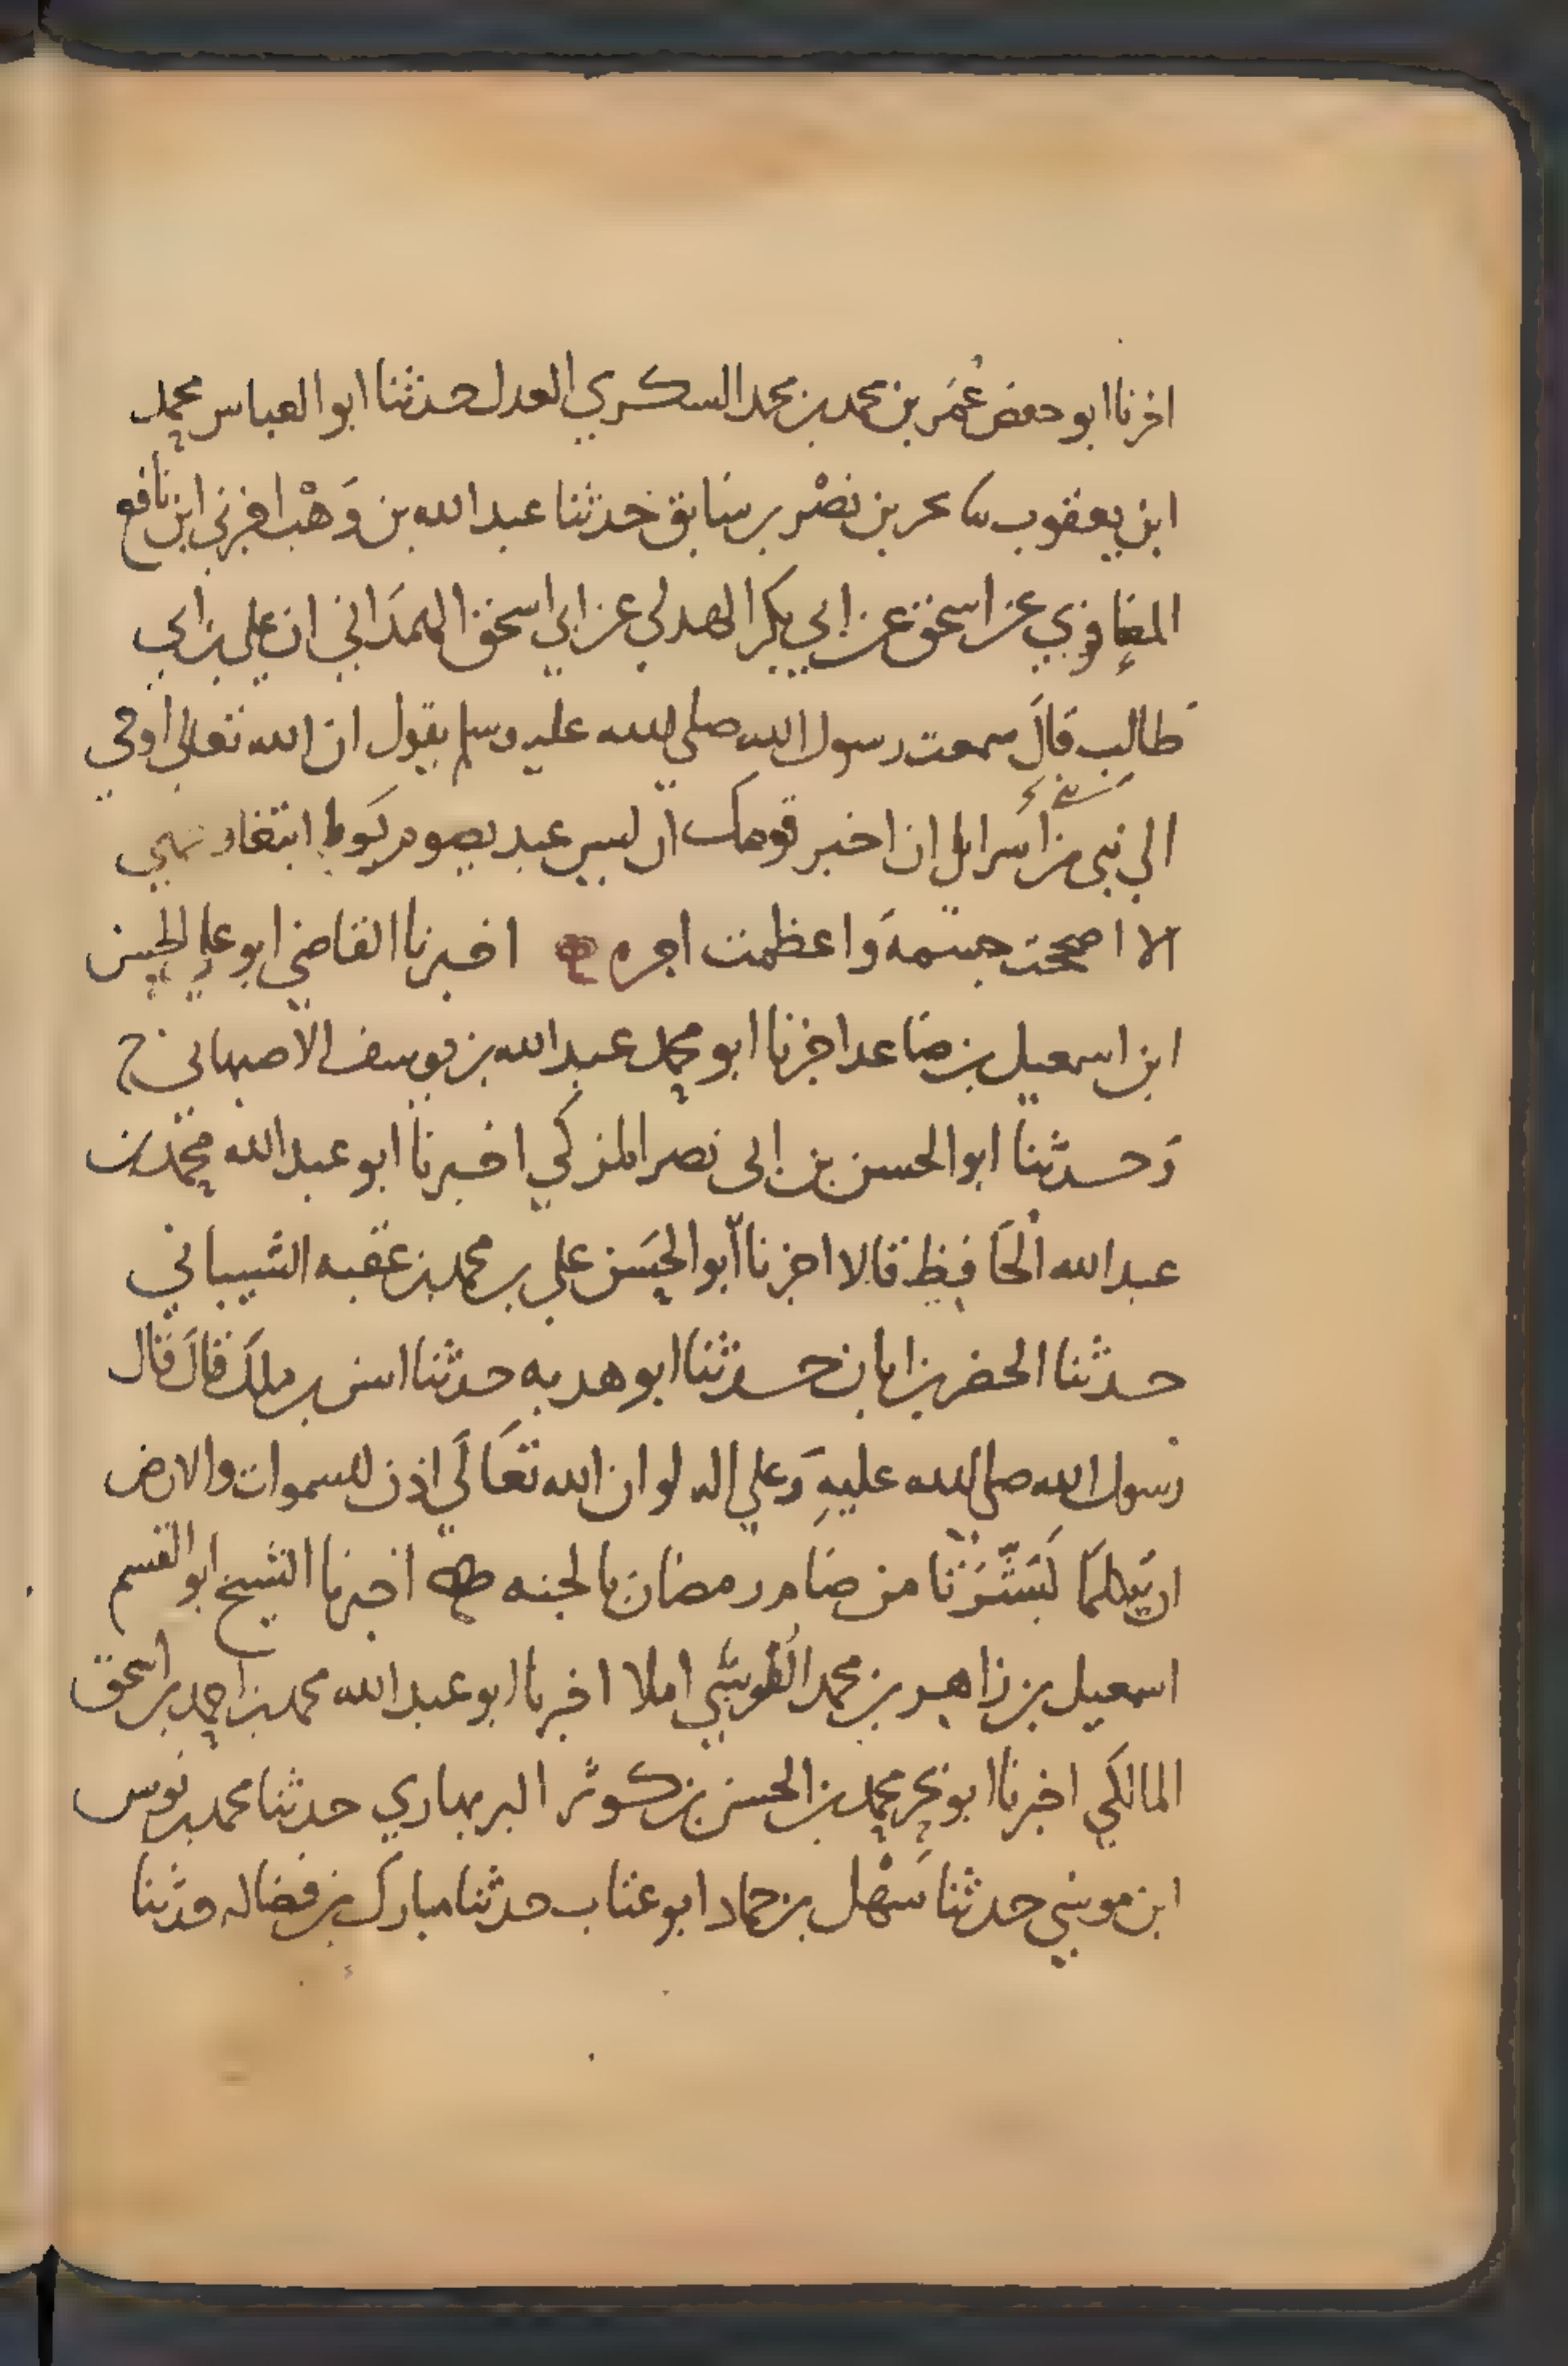 اخبرنا ابو حفص عُمَر بن محمد بن محمد السكري العدل حدثنا ابو العباس محمد
ابن يعقوب نا بحر بن نصْر بن سابق حدثنا عبد الله بن وَهْب اخبرني ابن نافع
المعافري عن اسحق عن ابي بكر الهدلي عن ابي اسحق الهمدَاني ان علي بن ابي
طالِب قالَ سمعت رسول الله صلى الله عليه وسلم يقول ان الله تعالى اوحى
الي نبي من بني اسرايل ان اخبر قومك ان ليس عبد يصوم يَوما ابتغاء وجهي
الا اصححت جسمه وَاعظمت اجره اخبرنا القاضي ابو علي الحسن
ابن اسمعيل بن صاعد اخبرنا ابو محمد عبد الله بن يوسف الاصبهاني ح
وَحدثنا ابو الحسن بن ابي نصر المزكي اخبرنا ابو عبد الله محمد بن
عبد الله الحَافِظ قالا اخبرنا أبو الحسَن علي بن محمد بن عقبه الشيباني
حدثنا الخضر بن ابان حدثنا ابو هدبه حدثنا انس بن ملك قالَ قال
رسول الله صلى الله عليهِ وَعلي اله لو ان الله تعَالَي اذن للسموات والارض
ان يتكلمَا لَبَشَّرَتا من صام رمضان بالجنه اخبرنا الشيخ ابو القسم
اسمعيل بن زاهر بن محمد النوقاني املا اخبرنا ابو عبد الله محمد بن احمد بن اسحق
المالكي اخبرنا ابو بحر محمد بن الحسن بن كوثر البربهاري حدثنا محمد بن يونس
ابن موسي حدثنا سَهْل بن حماد ابو عتاب حدثنا مبارك بن فضاله حدثنا